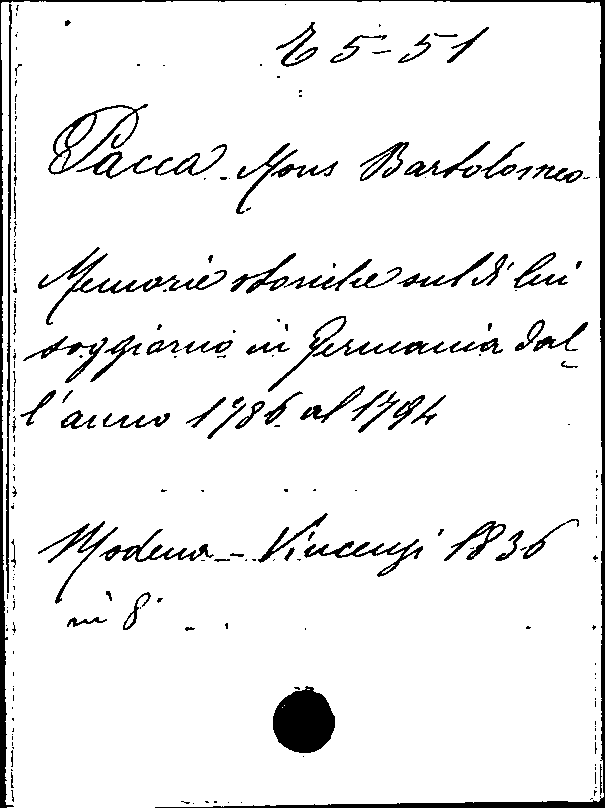 E 5-51
Pacca Mons Bartolomeo
Memorie storiche sul di lui
soggiorno in Germania dal-
l'anno 1786 al 1794
Modena - Vincenzi 1836
in 8°